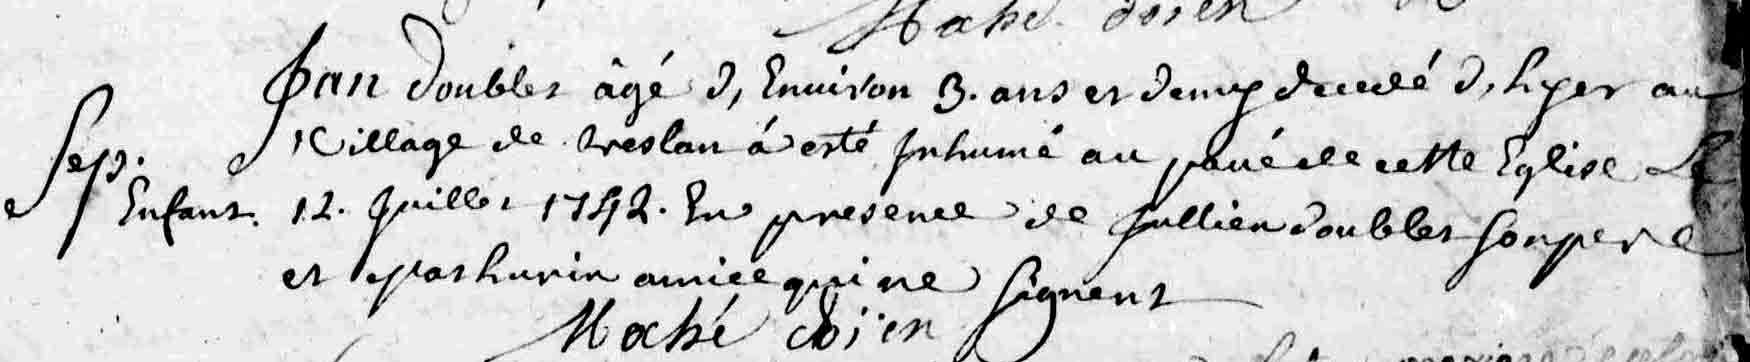 Mahé doïen
Jan doublet âgé d, Environ 3. ans et demy decedé d, hyer au
Village de treslan á esté Inhumé au pavé de cette Eglise Le
Sep.
Enfant. 12. Juillet 1742. En presence de Jullien doublet son pere
et Mathurin amice qui ne signent
Mahé doïen